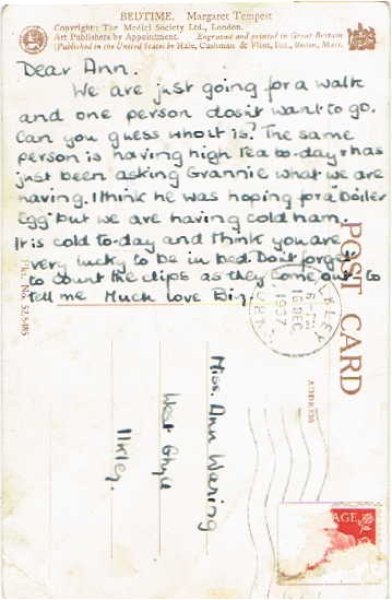 BEDTIME. Margaret Tempest
Copyright: The Medici Society Ltd., London.
Art Publishers by Appointment. Engraved and printed in Great Britain
(Published in the United States by Hale, Cushman & Flint, Inc., Boston, Mass.
Dear Ann.
We are just going for a walk
and one person dosn't want to go.
Can you guess who it is? The same
person is having high Tea to-day & has
just been asking Grannie what we are
having. I think he was hoping for a "boiler
Egg" but we are having cold ham.
It is cold to-day and I think you are
very lucky to be in bed. Don't forget
to count the clips as they come out to
tell me Much love
POST CARD
ADDRESS
Pkt. No. 52.5485
16 DEC
1937
Miss. Ann Waring
West Ghyll
Ilkley.
AGE